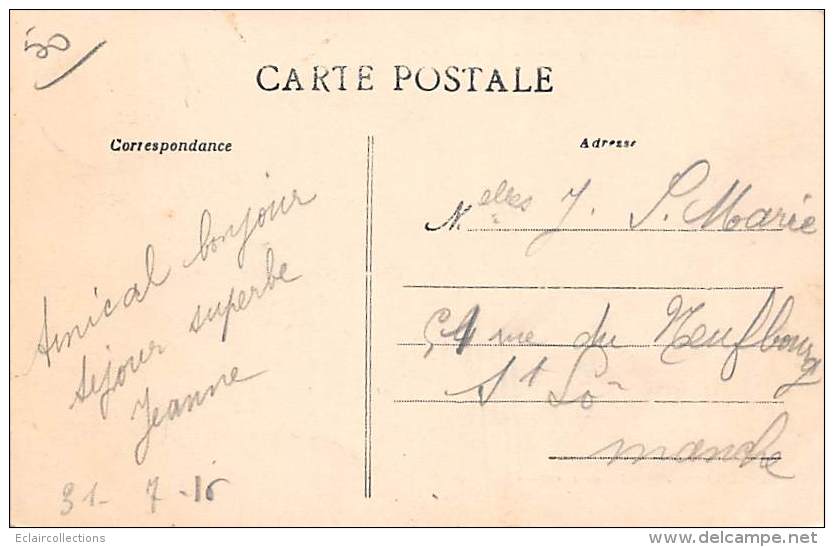 50
CARTE POSTALE
Correspondance
Adresse
Amical bonjour
séjour superbe
Jeanne
31-7-
elles J. S. Marie
rue du Neufbourg
St Lô
manche
Eclaircollections
www.delcampe.net